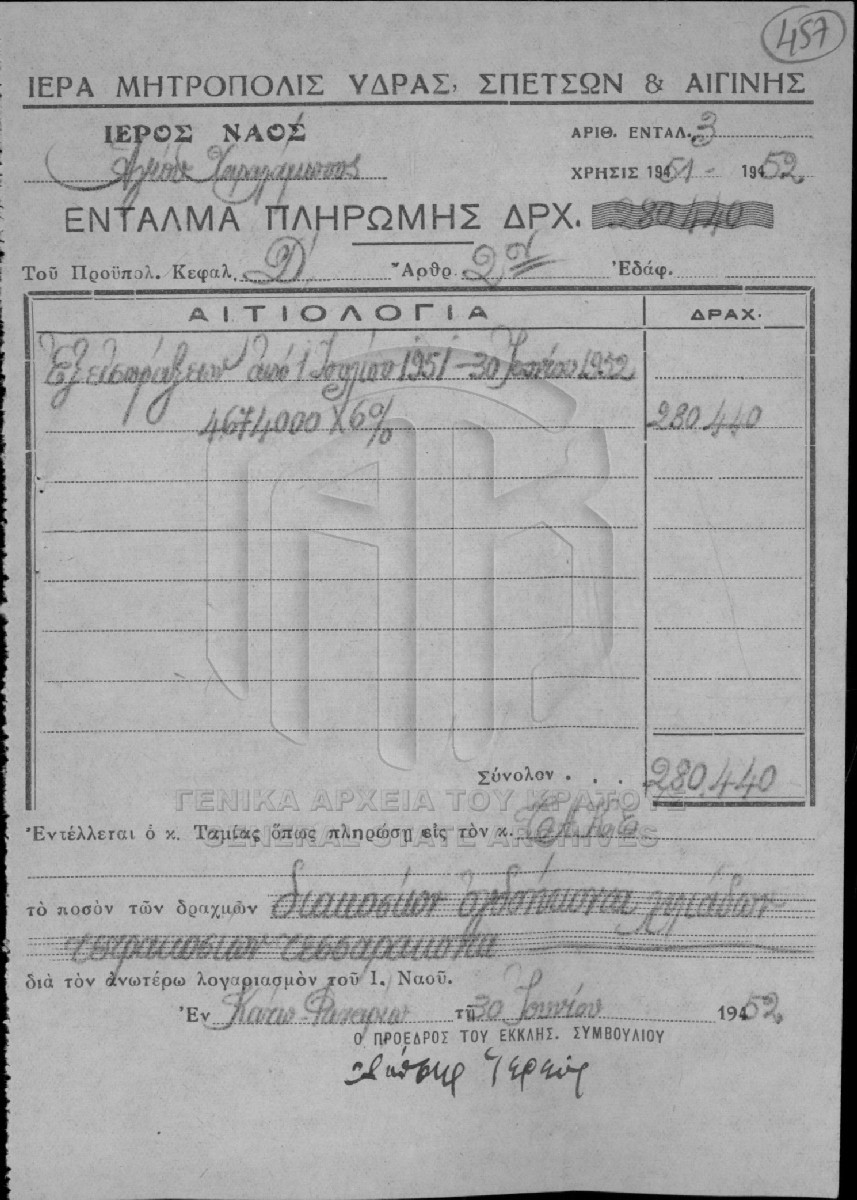 457
ΙΕΡΑ ΜΗΤΡΟΠΟΛΙΣ ΥΔΡΑΣ, ΣΠΕΤΣΩΝ & ΑΙΓΙΝΗΣ
ΙΕΡΟΣ ΝΑΟΣ
ΑΡΙΘ. ΕΝΤΑΛ. 3
Χαραλάμπους
ΧΡΗΣΙΣ 1951 - 1952
ΕΝΤΑΛΜΑ ΠΛΗΡΩΜΗΣ ΔΡΧ. 280440
Τοῦ Προϋπολ. Κεφαλ. Δ' Ἄρθρ. 2 Ἐδάφ.
ΑΙΤΙΟΛΟΓΙΑ ΔΡΑΧ.
Ἐξ εἰσπράξεων ἀπό 1 Ἰουλίου 1951 - 30 Ἰουνίου 1952
4674000 Χ 6% 280.440
Σύνολον . . . 280.440
ΓΕΝΙΚΑ ΑΡΧΕΙΑ ΤΟΥ ΚΡΑΤΟΥΣ
GENERAL STATE ARCHIVES
Ἐντέλλεται ὁ κ. Ταμίας ὅπως πληρώσῃ εἰς τὸν κ. Τ.Α.Κ.Ε
τὸ ποσὸν τῶν δραχμῶν διακοσίων ὀγδοήκοντα χιλιάδων
τετρακοσίων τεσσαράκοντα
διὰ τὸν ἀνωτέρω λογαριασμὸν τοῦ Ι. Ναοῦ.
Ἐν Κάτω Φανάριον τῇ 30 Ἰουνίου 1952
Ο ΠΡΟΕΔΡΟΣ ΤΟΥ ΕΚΚΛΗΣ. ΣΥΜΒΟΥΛΙΟΥ
Ἱερεύς